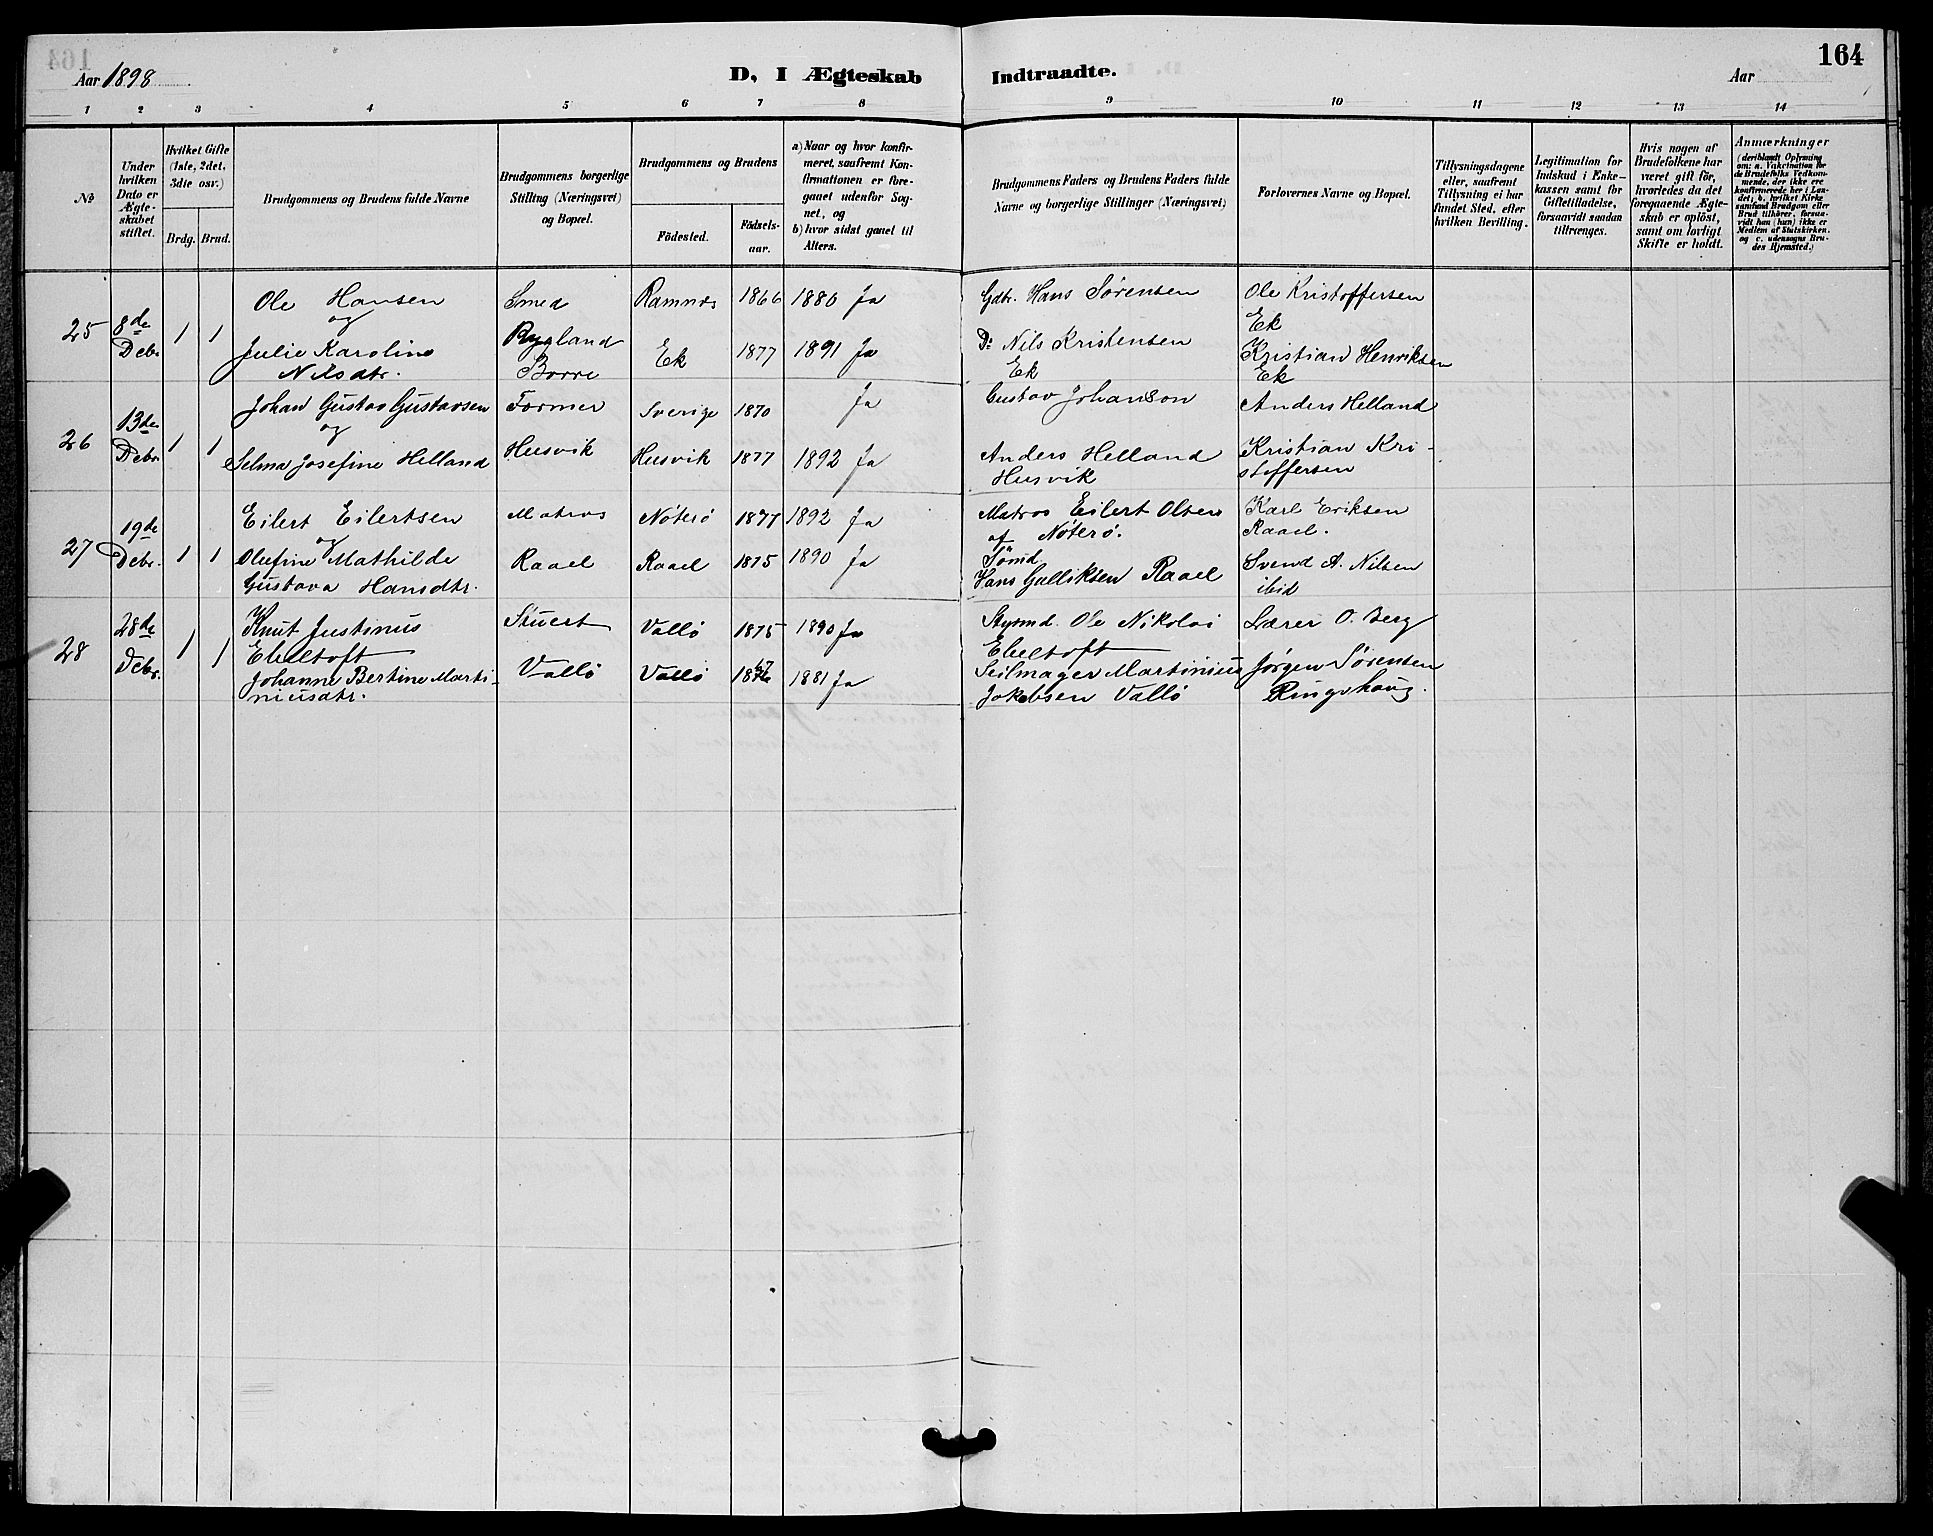 164
Aar 1898
D, I Ægteskab Indtraadte.
Aar
1 2 3 4 5 6 7 8 9 10 11 12 13 14
No
Under hvilken Dato er Ægteskabet stiftet.
Hvilket Gifte (1ste, 2det, 3die osv.)
Brdg. Brud.
Brudgommens og Brudens fulde Navne
Brudgommens borgerlige Stilling (Næringsvei) og Bopæl.
Brudgommens og Brudens
Födested.
Födselsaar.
a) Naar og hvor konfirmeret, saafremt Konfirmationen er foregaaet udenfor Sognet, og
b) hvor sidst gaaet til Alters.
Brudgommens Faders og Brudens Faders fulde Navne og borgerlige Stillinger (Næringsvei)
Forlovernes Navne og Bopæl.
Tillysningsdagene eller, saafremt Tillysning ei har fundet Sted, efter hvilken Bevilling.
Legitimation for Indskud i Enkekassen samt for Giftetilladelse, forsaavidt saadan tiltrænges.
Hvis nogen af Brudefolkene har været gift för, hvorledes da det foregaaende Ægteskab er oplöst, samt om lovligt Skifte er holdt.
Anmærkninger
(deriblandt Oplysning om: a. Vakcination for de Brudefolks Vedkommende, der ikke ere konfirmerede her i Landet; b. hvilket Kirkesamfund Brudgom eller Brud tilhörer, forsaavidt han (hun) ikke er Medlem af Statskirken, og c. udensogns Brudes Hjemsted.)
25 8de Debr. 1 1
Ole Hansen Smed Ramnæs 1866 1880 Ja Gdbr. Hans Sørensen Ole Kristoffersen
og Rygland Ek
Julie Karoline Borre Ek 1877 1891 Ja Do Nils Kristensen Kristian Henriksen
Nilsdtr. Ek Ek
26 13de Debr. 1 1
Johan Gustav Gustavsen Former Sverige 1870 Ja Gustav Johanson Anders Helland
og
Selma Josefine Helland Husvik Husvik 1877 1892 Ja Anders Helland Kristian Kri-
Husvik stoffersen
27 19de Debr. 1 1
Eilert Eilertsen Matros Nøterø 1877 1892 Ja Matros Eilert Olsen Karl Eriksen
og af Nøterø. Raael.
Olufine Mathilde Raael Raael 1875 1890 Ja Sømd. Svend A. Nilsen
Gustava Hansdtr. Hans Gulliksen Raael ibid
28 28de Debr. 1 1
Knut Justinus Stuert Vallø 1875 1890 Ja Stysmd. Ole Nikolai Lærer O. Berg
Ebeltoft Ebeltoft
Johanne Bertine Marti- Vallø Vallø 1867 1881 Ja Seilmager Martinius Jørgen Sørensen
niusdtr. Jakobsen Vallø Ringshaug.